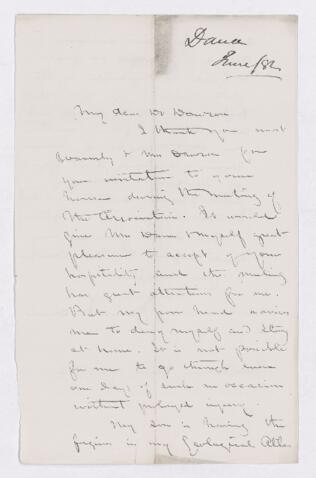 Dana
June /82
My dear Dr Dawson
I thank you most
warmly & Mrs Dawson for
your invitation to your
house during the meeting of
the Association. It would
give Mrs Dana & myself great
pleasure to accept of your
hospitality and the meeting
has great attractions for me.
But my poor head advises
me to deny myself and stay
at home. It is not possible
for me to go through even
one day of such an occasion
without prolonged injury.
My son is having the
figures in my Geological